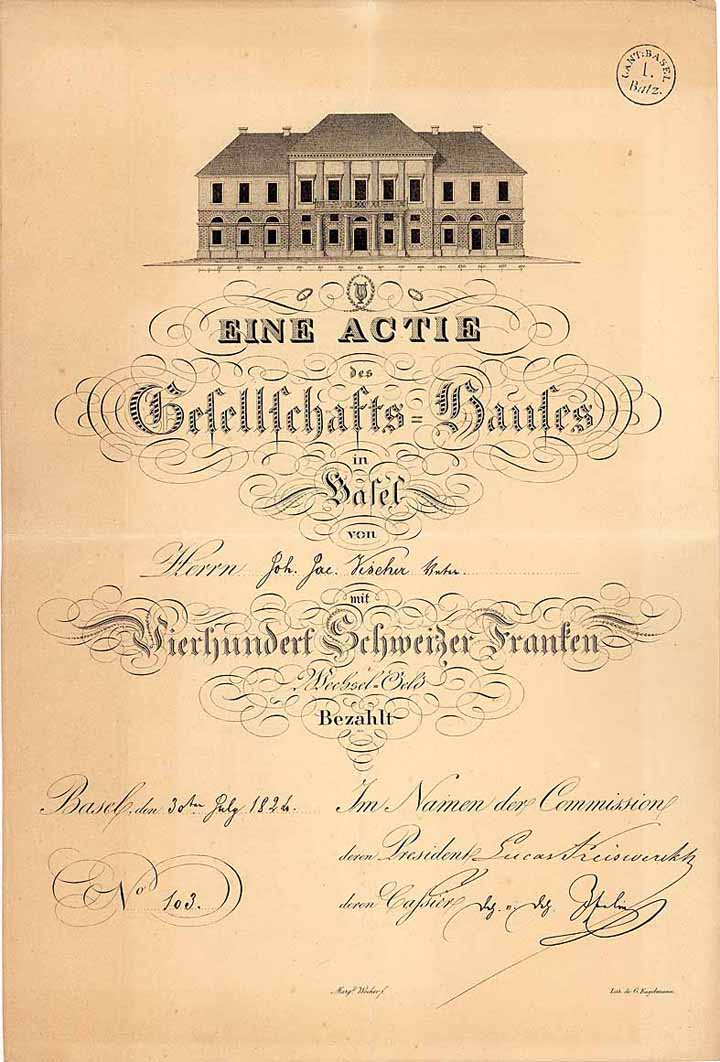 CANT: BASEL
1.
Batz.
EINE ACTIE
des
Gesellschafts=Hauses
in
Basel
von
Herrn Joh. Jac. Vischer Vater.
mit
Vierhundert Schweizer Franken
Wechsel=Geld
Bezahlt
Basel, den 30ten July 1824.
Im Namen der Commission
deren President Lucas Preiswerckh
No 103.
deren Cassier Iselin
Lith. de G. Engelmann.